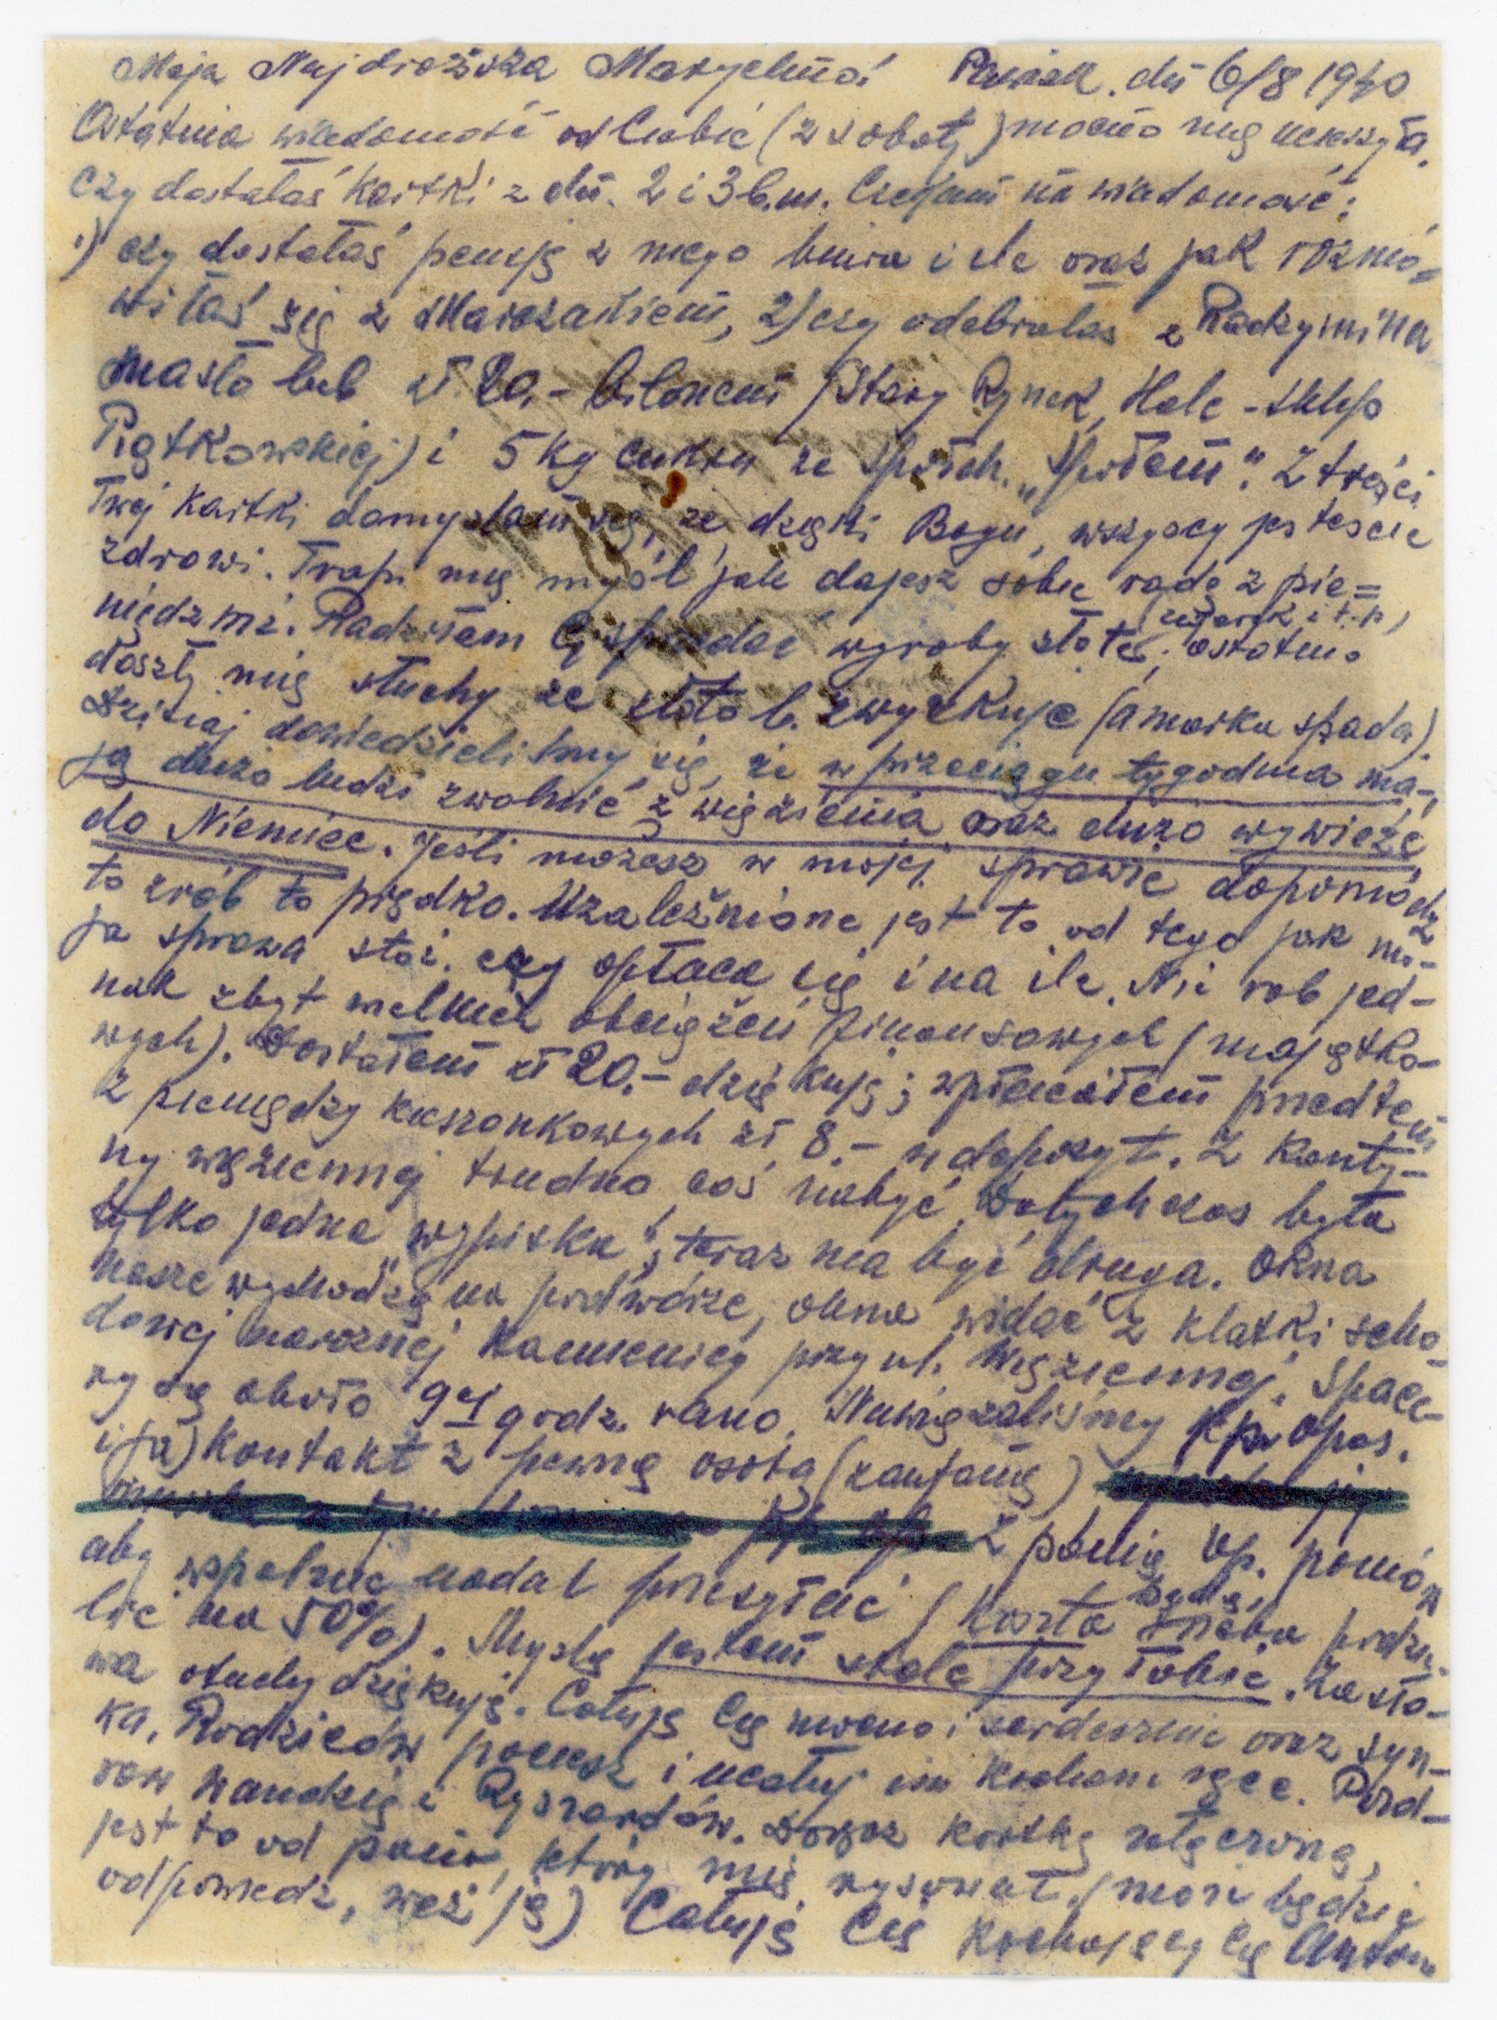 Moja Najdroższa Marychno! Pawiak. dń 6/8 1940
Ostatnia wiadomość od Ciebie (z soboty) mocno mię ucieszyła.
Czy dostałaś kartki z dń. 2 i 3 b.m. Czekam na wiadomość:
1) czy dostałaś pensję z mego biura i ile oraz jak rozmó=
wiłaś się z Marczakiem, 2) czy odebrałaś z Radzymina
masło lub zł. 20,- bilonem (Stary Rynek, Hale - sklep
Piątkowskiej) i 5 kg cukru ze Spółdz. „Społem". Z treści
Twej kartki domyślam się, że dzięki Bogu, wszyscy jesteście
zdrowi. Trapi mię myśl jak dajesz sobie radę z pie=
niędzmi. Radziłem Ci sprzedać wyroby złote (zegarek i t.p.), ostatnio
doszły mię słuchy że złoto b. zwyżkuje (a marka spada).
Dzisiaj dowiedzieliśmy się, że w przeciągu tygodnia ma-
ją dużo ludzi zwolnić z więzienia oraz dużo wywieźć
do Niemiec. Jeśli możesz w mojej sprawie dopomódz
to zrób to prędko. Uzależnione jest to od tego jak mo-
ja sprawa stoi, czy opłaca się i na ile. Nie rób jed-
nak zbyt wielkich obciążeń finansowych (majątko-
wych). Dostałem zł 20.- dziękuję; wpłaciłem przedtem
z pieniędzy kieszonkowych zł 8.- w depozyt. Z kanty-
ny więziennej trudno coś nabyć, dotychczas była
tylko jedna „wypiska", teraz ma być druga. Okna
nasze wychodzą na podwórze, okna widać z klatki scho-
dowej narożnej kamienicy przy ul. Więziennej. Space-
ry są około 9ej godz. rano. Nawiązaliśmy (p. Opas.
i ja) kontakt z pewną osobą (zaufaną)
Z panią Op. pomów
aby wspólnie nadal przesyłać (koszta będą trzeba podzie-
lić na 50%). Myślą jestem stale przy Tobie. Za sło-
wa otuchy dziękuję. Całuję Cię mocno i serdecznie oraz syn-
ka, Rodziców pociesz i ucałuj im kochane ręce. Pozd-
rów Wandzię i Ryszardów. Doręcz kartkę załączoną,
jest to od pana, który mię rysował, (może będzie
odpowiedź, weź ją) Całuję Cię kochający Cię Antoni